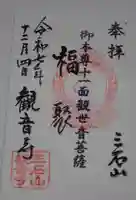 奉拝
三石山
御本尊十一面観世音菩薩
福聚
観音寺
令和七年
十二月四日